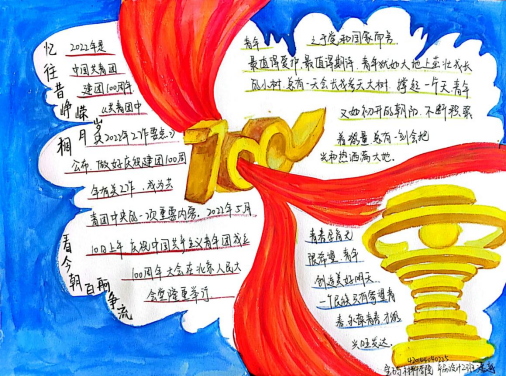 忆往昔峥嵘岁月稠
2022年是
中国共青团
建团100周年
共青团中
央2022年工作要点》
公布 做好庆祝建团100周
年有关工作，成为共
青团中央的一项重要内容。2022年5月
10日上午 庆祝中国共产主义青年团成立
100周年大会在北京人民大
会堂隆重举行
看今朝百舸争流
100
青年
之于党和国家而言
最值得爱护 最值得期待。青年犹如大地上茁壮成长
的小树 总有一天会长成参天大树 撑起一个天 青年
又如初升的朝阳 不断积累
着能量 总有一刻会把
光和热洒满大地。
青年
创造美好明天
一个民族只有寄望青
春 永葆青春 才能
兴旺发达